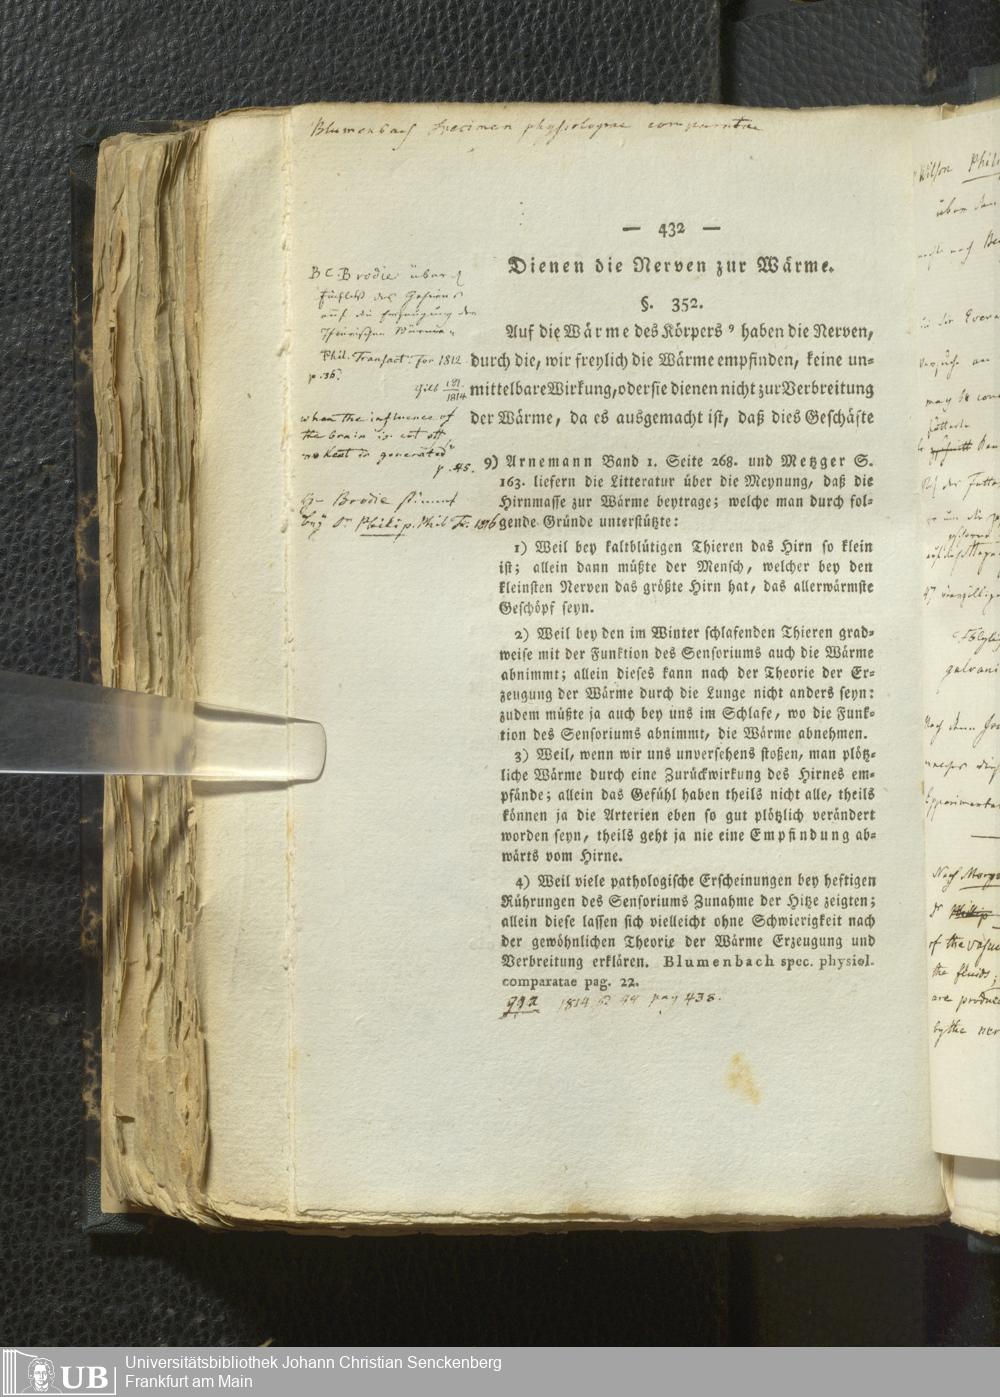 Blumenbach Specimen physiologiae comparatae
— 432 —
Dienen die Nerven zur Wärme.
§. 352.
Auf die Wärme des Körpers ⁹ haben die Nerven,
durch die, wir freylich die Wärme empfinden, keine un-
mittelbare Wirkung, oder sie dienen nicht zur Verbreitung
der Wärme, da es ausgemacht ist, daß dies Geschäfte
B C. Brodie über
auf die Erzeugung der
thierischen Wärme
Phil. Transact: for 1812
p. 36.
Gilb 1814
when the influence of
the brain is cut off
no heat is generated
p. 45.
Brodie stimmt
bey Dr Philip. Phil Tr. 1816
9) Arnemann Band 1. Seite 268. und Metzger S.
163. liefern die Litteratur über die Meynung, daß die
Hirnmasse zur Wärme beytrage; welche man durch fol-
gende Gründe unterstützte:
1) Weil bey kaltblütigen Thieren das Hirn so klein
ist; allein dann müßte der Mensch, welcher bey den
kleinsten Nerven das größte Hirn hat, das allerwärmste
Geschöpf seyn.
2) Weil bey den im Winter schlafenden Thieren grad-
weise mit der Funktion des Sensoriums auch die Wärme
abnimmt; allein dieses kann nach der Theorie der Er-
zeugung der Wärme durch die Lunge nicht anders seyn:
zudem müßte ja auch bey uns im Schlafe, wo die Funk-
tion des Sensoriums abnimmt, die Wärme abnehmen.
3) Weil, wenn wir uns unversehens stoßen, man plötz-
liche Wärme durch eine Zurückwirkung des Hirnes em-
pfände; allein das Gefühl haben theils nicht alle, theils
können ja die Arterien eben so gut plötzlich verändert
worden seyn, theils geht ja nie eine Empfindung ab-
wärts vom Hirne.
4) Weil viele pathologische Erscheinungen bey heftigen
Rührungen des Sensoriums Zunahme der Hitze zeigten;
allein diese lassen sich vielleicht ohne Schwierigkeit nach
der gewöhnlichen Theorie der Wärme Erzeugung und
Verbreitung erklären. Blumenbach spec. physiol.
comparatae pag. 22.
1814 pag 438.
Wilson Phili
über den
may be con
galvani
Nach dem
Experimenta
Nach
Dr Philip
of the
the fluids;
are produce
by the ner
Universitätsbibliothek Johann Christian Senckenberg
UB
Frankfurt am Main